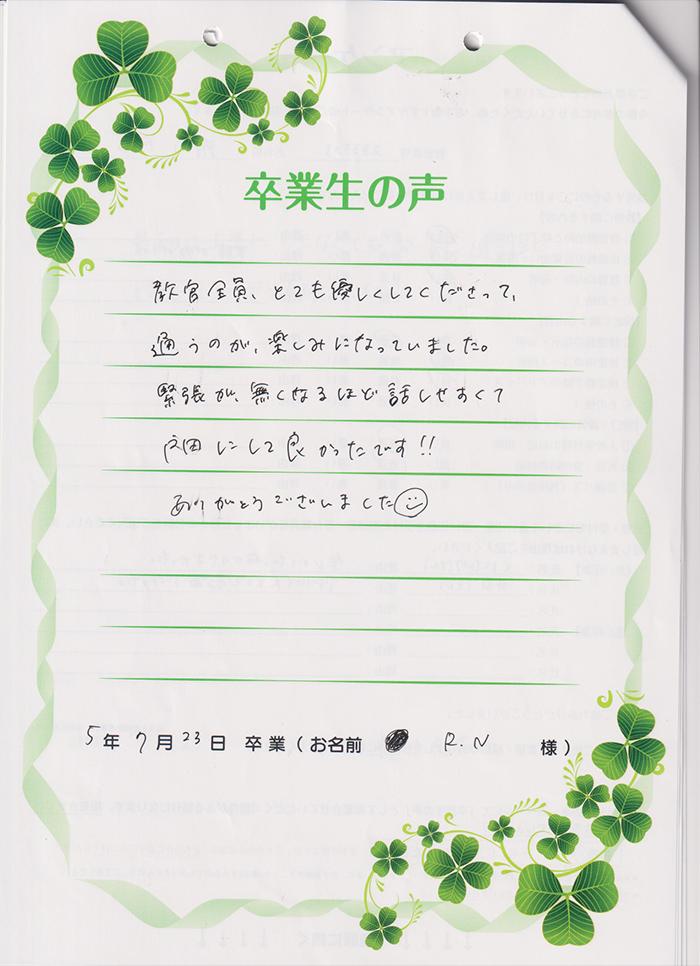 卒業生の声
教官全員、とても優しくしてくださって、
通うのが、楽しみになっていました。
緊張が、無くなるほど話しやすくて
にして良かったです!!
ありがとうございました
5年7月23日 卒業(お名前 R.N 様)